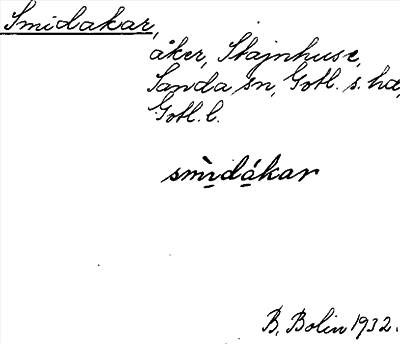 Smidakar,
åker, Stajnhuse,
Sanda sn, Gotl. s. hd,
Gotl. l.
smìdákar
B. Bolin 1932.